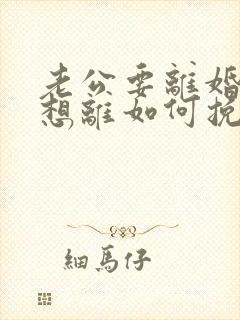 老公要離婚
想離如何挽
細馬仔